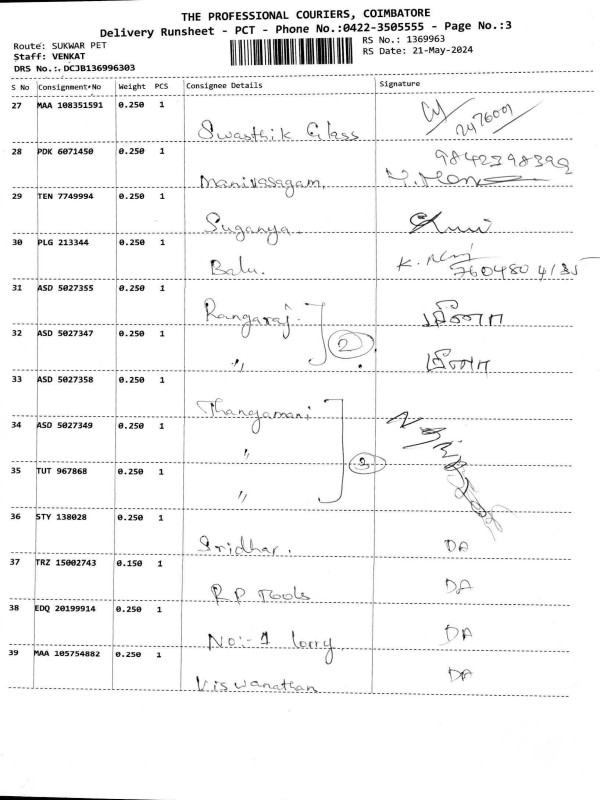 THE PROFESSIONAL COURIERS, COIMBATORE
Delivery Runsheet - PCT - Phone No.:0422-3505555 - Page No.:3
Route: SUKWAR PET
RS No.: 1369963
Staff: VENKAT
RS Date: 21-May-2024
DRS No.:.DCJB136996303
S No Consignment No Weight PCS Consignee Details Signature
27 MAA 108351591 0.250 1
Swasthik Glass
28 PDK 6071450 0.250 1
9842398392
Manivasagam,
29 TEN 7749994 0.250 1
Suganya
30 PLG 213344 0.250 1
Balu.
31 ASD 5027355 0.250 1
Rangaraj
32 ASD 5027347 0.250 1 2
"
33 ASD 5027358 0.250 1
Thangamani
34 ASD 5027349 0.250 1
"
35 TUT 967868 0.250 1 3
"
36 STY 138028 0.250 1
Sridhar. DA
37 TRZ 15002743 0.150 1
RP Tools DA
38 EDQ 20199914 0.250 1
No:- 1 lorry DA
39 MAA 105754882 0.250 1
Viswanathan DA